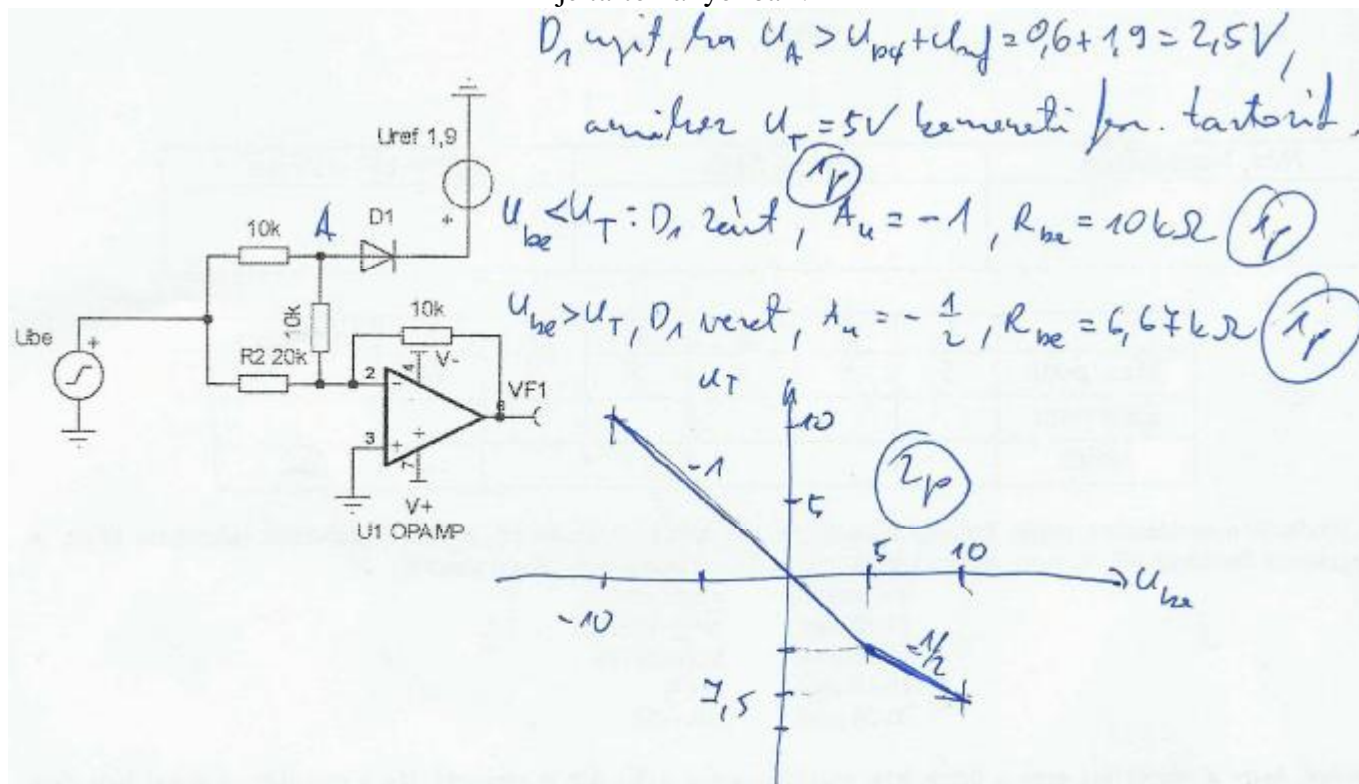 D₁ nyit, ha U_A > U_be + U_ref = 0,6 + 1,9 = 2,5V,
amihez U_T = 5V bemeneti fesz. tartozik.
1p
U_be < U_T : D₁ zárt, A_u = -1, R_be = 10 kΩ 1p
U_be > U_T, D₁ vezet, A_u = - 1/2, R_be = 6,67 kΩ 1p
Uref 1,9
+
D1
A
10k
10k
10k
Ube
+
R2 20k
2
-
4
V-
VF1
6
3
+
7
V+
U1 OPAMP
U_T
10
-1
5
2p
5
10
U_be
-10
-1/2
7,5